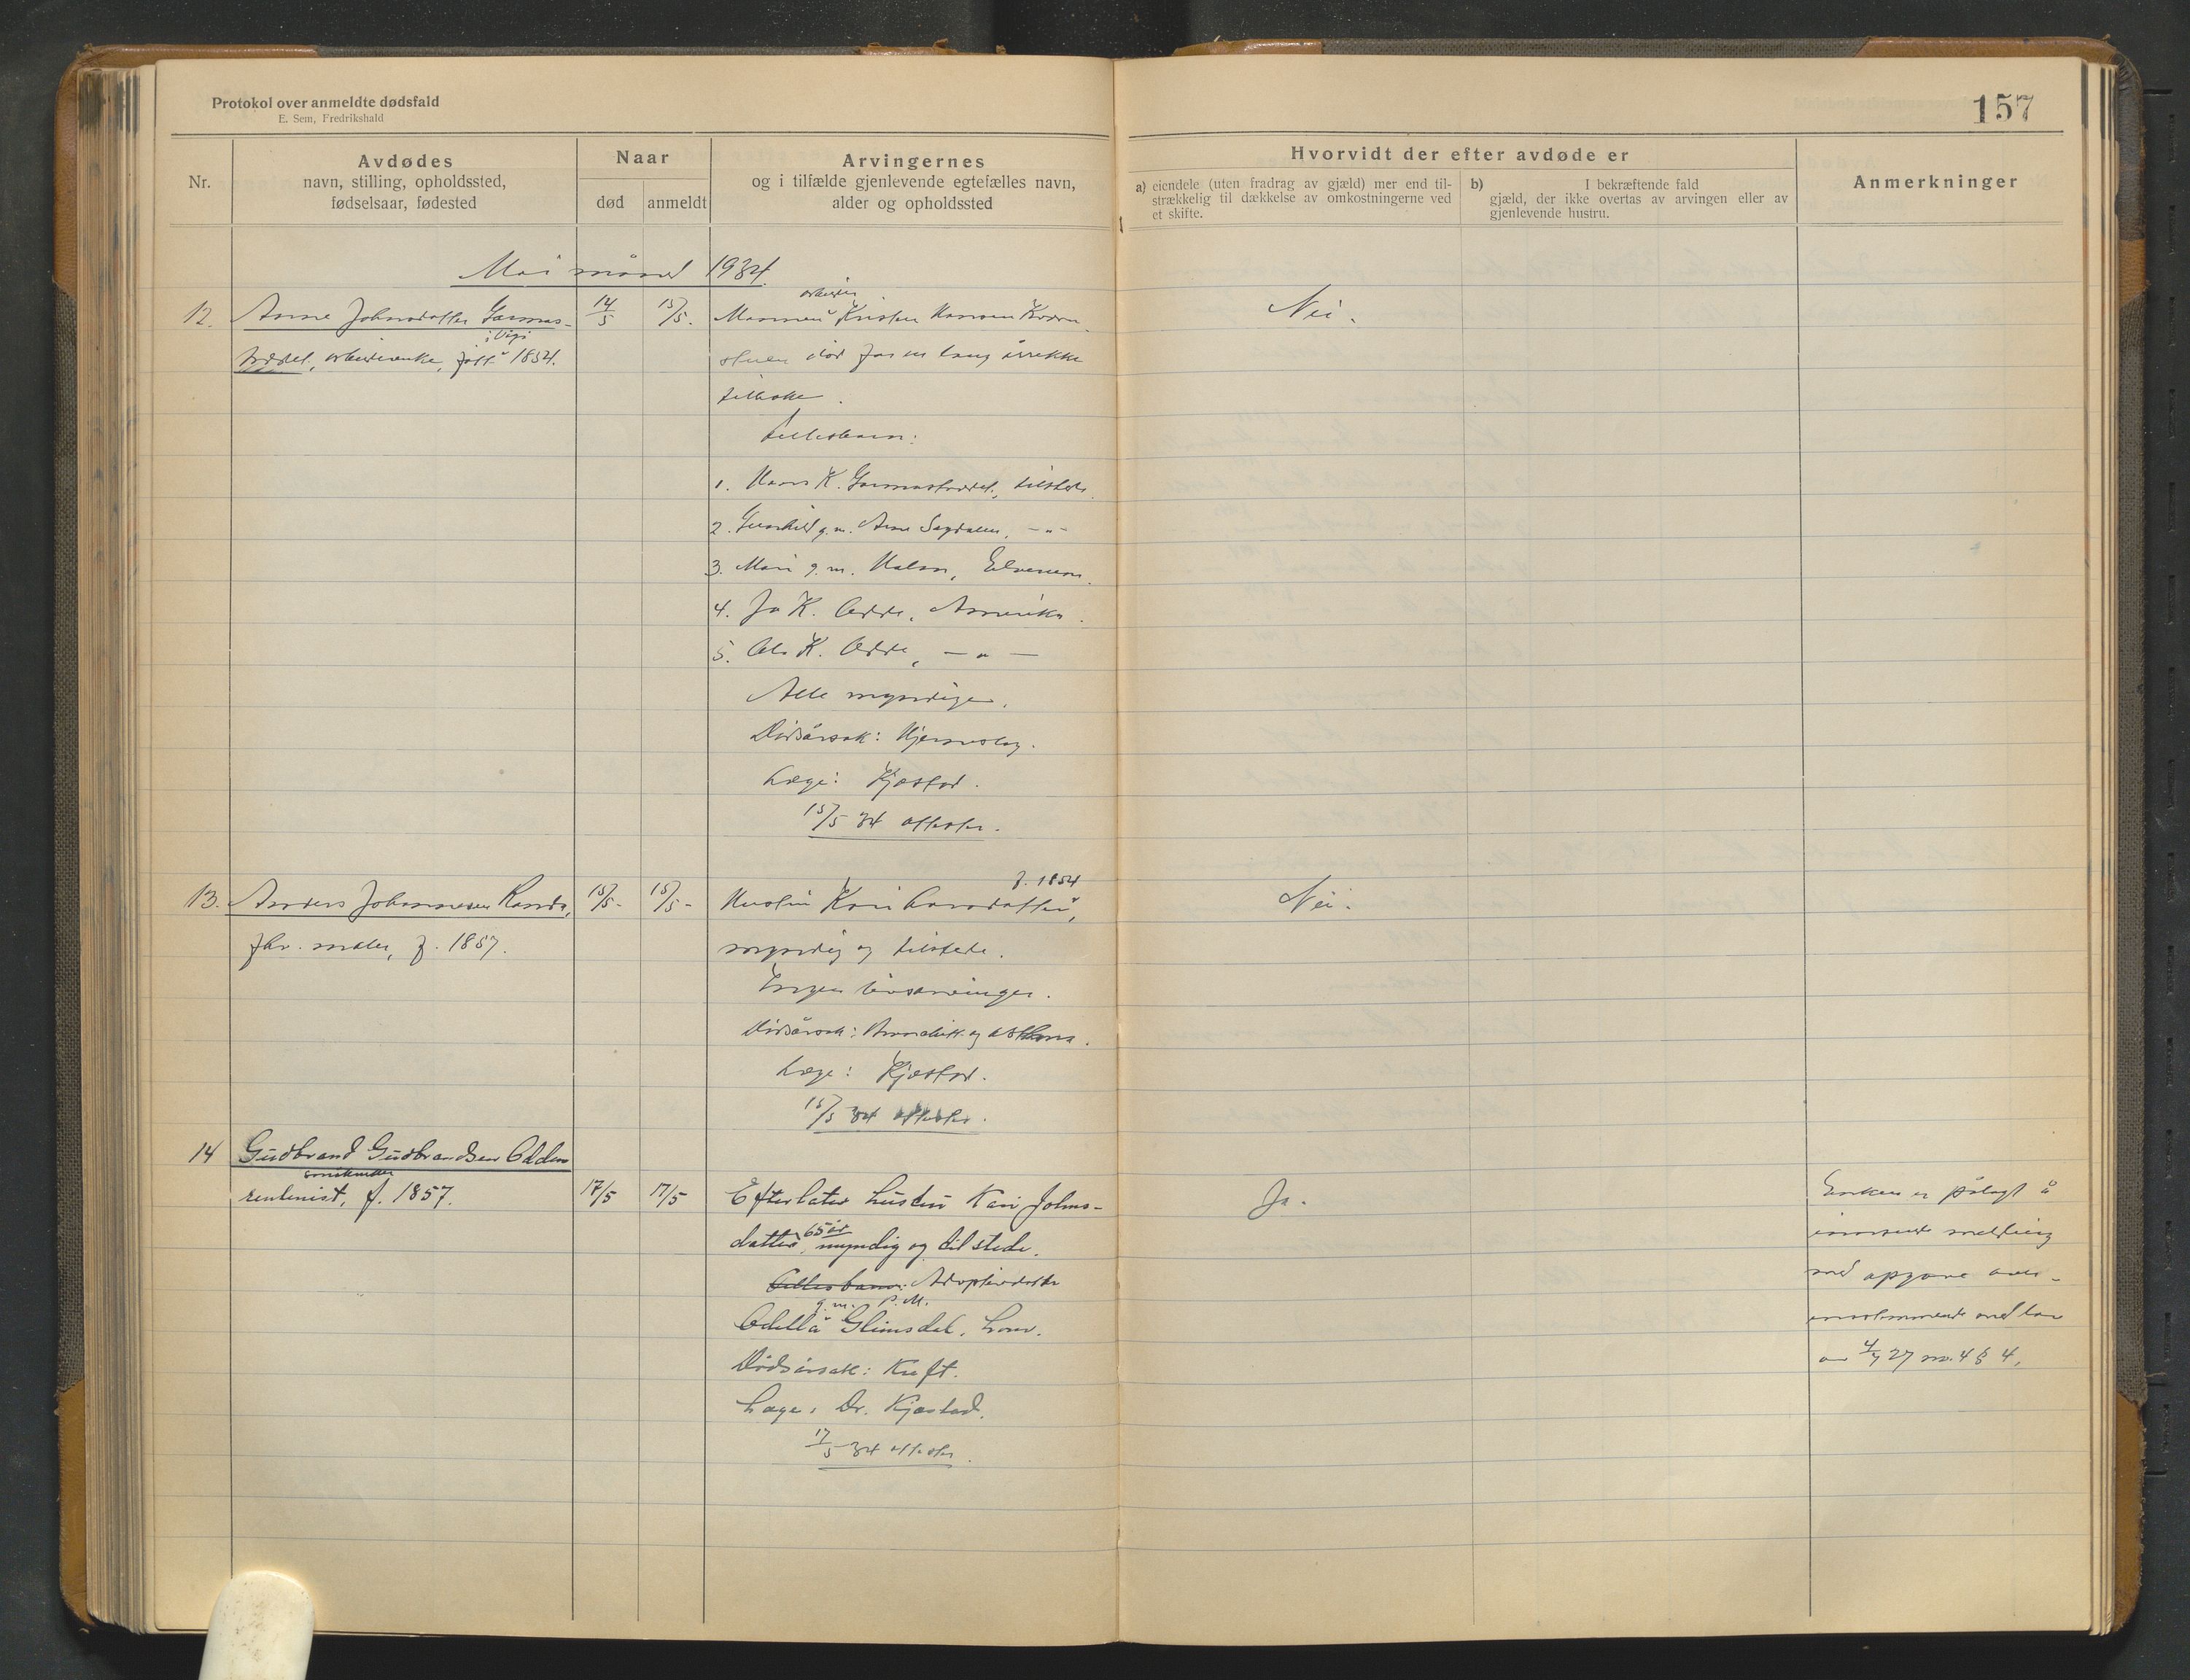 Protokol over anmeldte dødsfald
E. Sem, Fredrikshald
157
Nr.
Avdødes
navn, stilling, opholdssted,
fødselsaar, fødested
Naar
død
anmeldt
Arvingernes
og i tilfælde gjenlevende egtefælles navn,
alder og opholdssted
Hvorvidt der efter avdøde er
a) eiendele (uten fradrag av gjæld) mer end til-
strækkelig til dækkelse av omkostningerne ved
et skifte.
b) I bekræftende fald
gjæld, der ikke overtas av arvingen eller av
gjenlevende hustru.
Anmerkninger
Mai måned 1934.
12. Anne Johnsdatter Garmos-
14/5 15/5.
arbeider
Mannen Kristen Hansen
Nei.
i Vågå
trædet, arbeiderenke, født 1854.
død for en lang årrekke
tilbake.
Fellesbarn:
1. Hans K. Garmostrædet, tilstede.
2. Gunhild g.m. Arne Sagdalen, -"-
3. Mari g.m. Elverum.
4. Jo K. Odde, Amerika.
5. Ole K. Odde, -"-
Alle myndige.
Dødsårsak: Hjerneslag.
Læge: Kjæstad.
15/5 34 attester.
13. Anders Johannesen Rand
15/5- 15/5-
f. 1854
Hustru Kari Larsdatter,
Nei.
fhv. maler, f. 1857.
myndig og tilstede.
Ingen livsarvinger.
Dødsårsak: Bronchitt og asthma.
Læge: Kjæstad.
15/5 34 attester.
14 Gudbrand Gudbrandsen Odden
rentenist, f. 1857.
17/5 17/5
Efterlater hustru Kari Johns-
Ja.
datter, 65 år myndig og tilstede.
Fellesbarn: Adoptivdatter
g.m. P.M.
Odella Glimsdal, Lom.
Dødsårsak: Kreft.
Læge: Dr. Kjæstad.
17/5 34 attester.
Enken er pålagt å
innsende melding
med opgave over-
ensstemmende med lov
av 4/7 27 nr. 4 § 4.